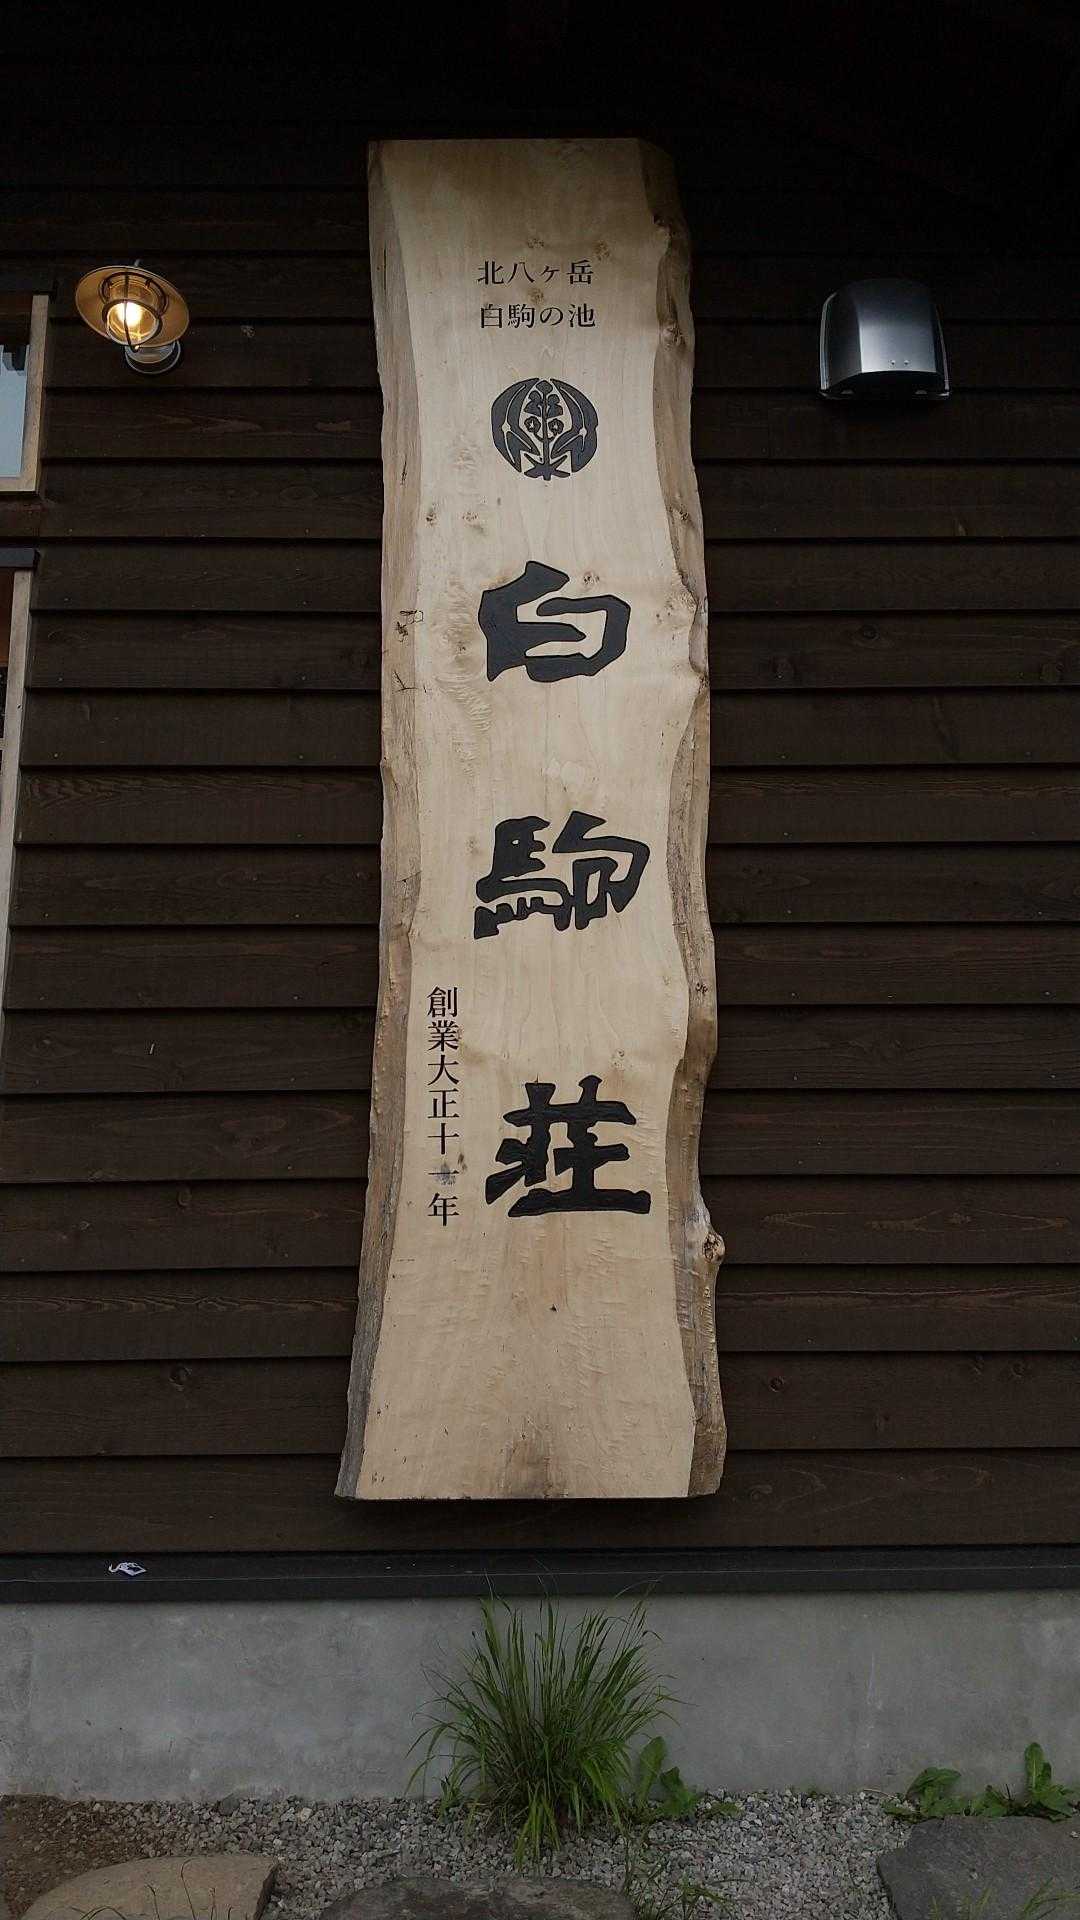 北八ヶ岳
白駒の池
白駒荘
創業大正十一年